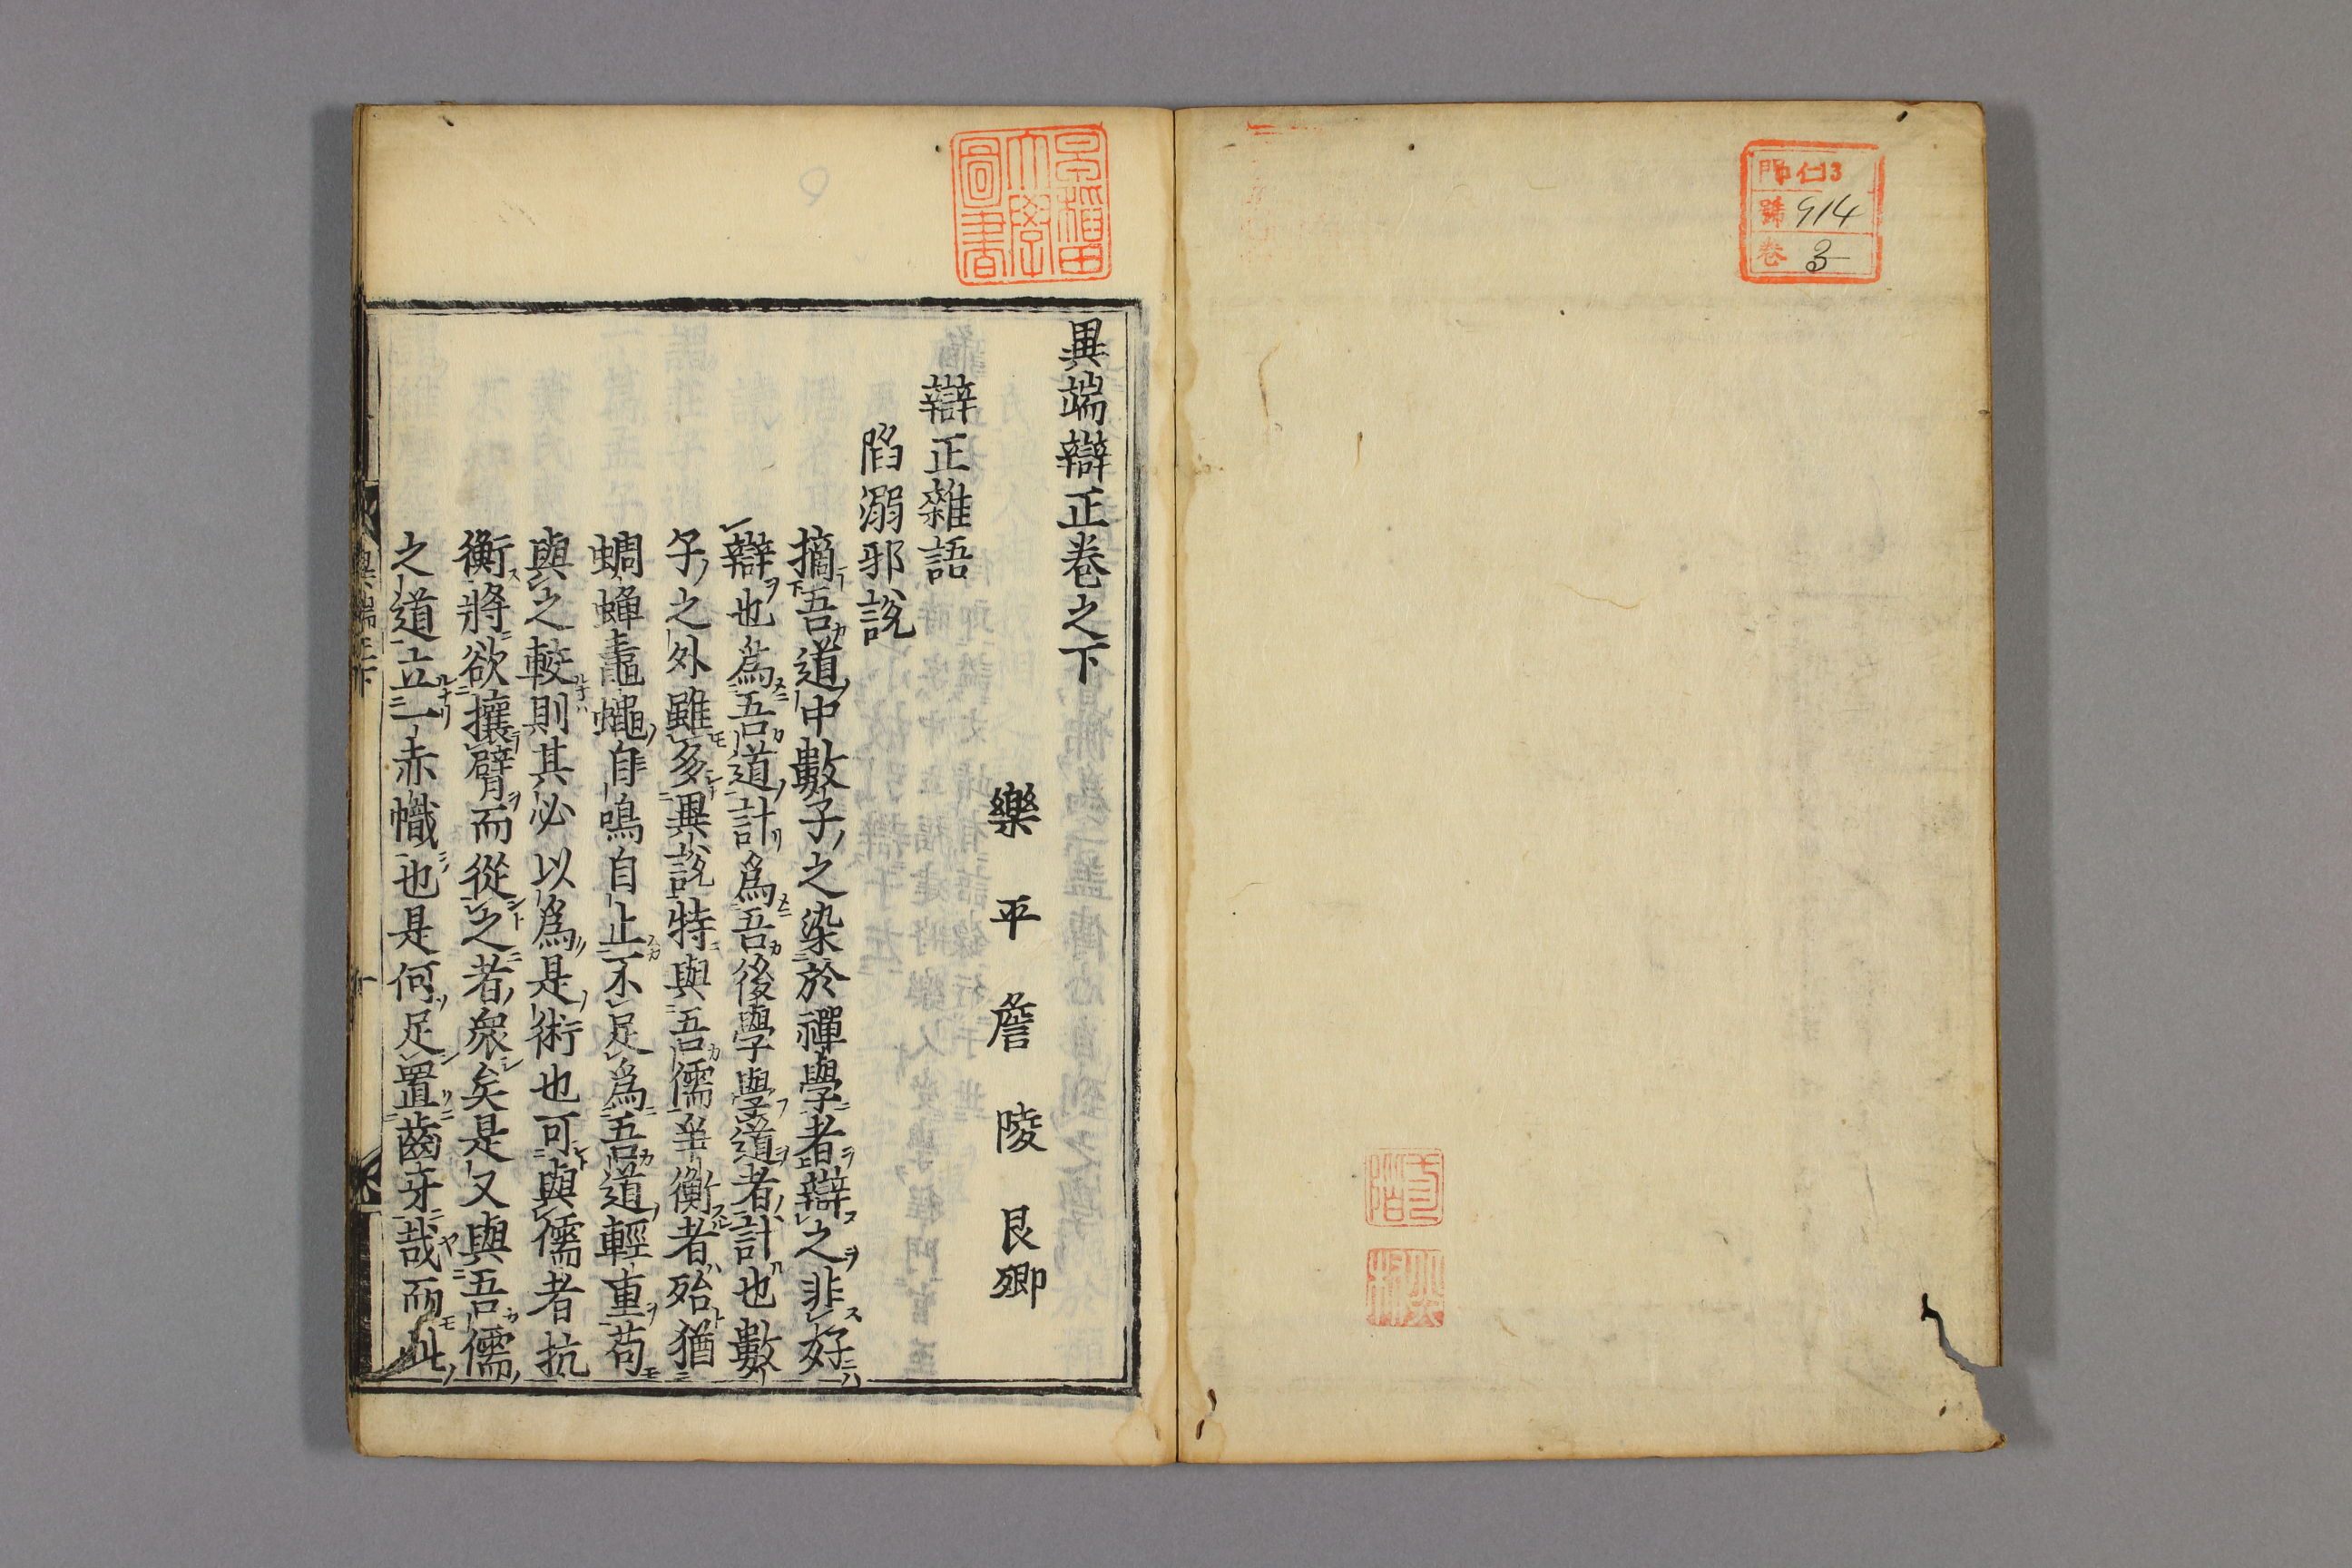 門 仁3
號 914
卷 3
早稲田大學圖書
異端辯正卷之下
樂平詹陵艮卿
辯正雜語
陷溺邪說
摘吾道中數子之染於禪學者辯之非好
辯也爲吾道計爲吾後學學道者計也數
子之外雖多異說特與吾儒爭衡者殆猶
蜩蟬鼃蠅自鳴自止不足爲吾道輕重苟
與之較則其必以爲是術也可與儒者抗
衡將欲攘臂而從之者衆矣是又與吾儒
之道立一赤幟也是何足置齒牙哉而此